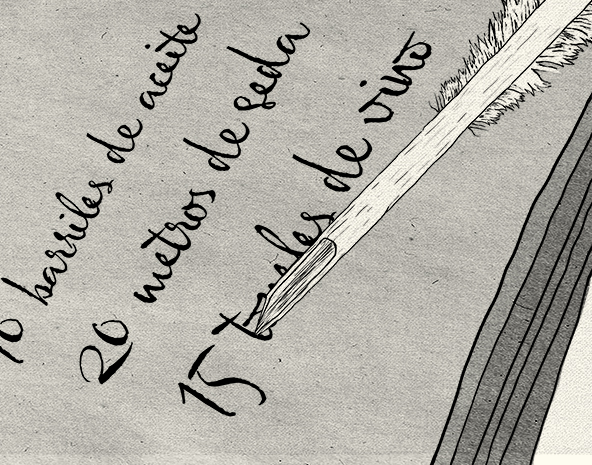 10 barriles de aceite
20 metros de seda
15 toneles de vino